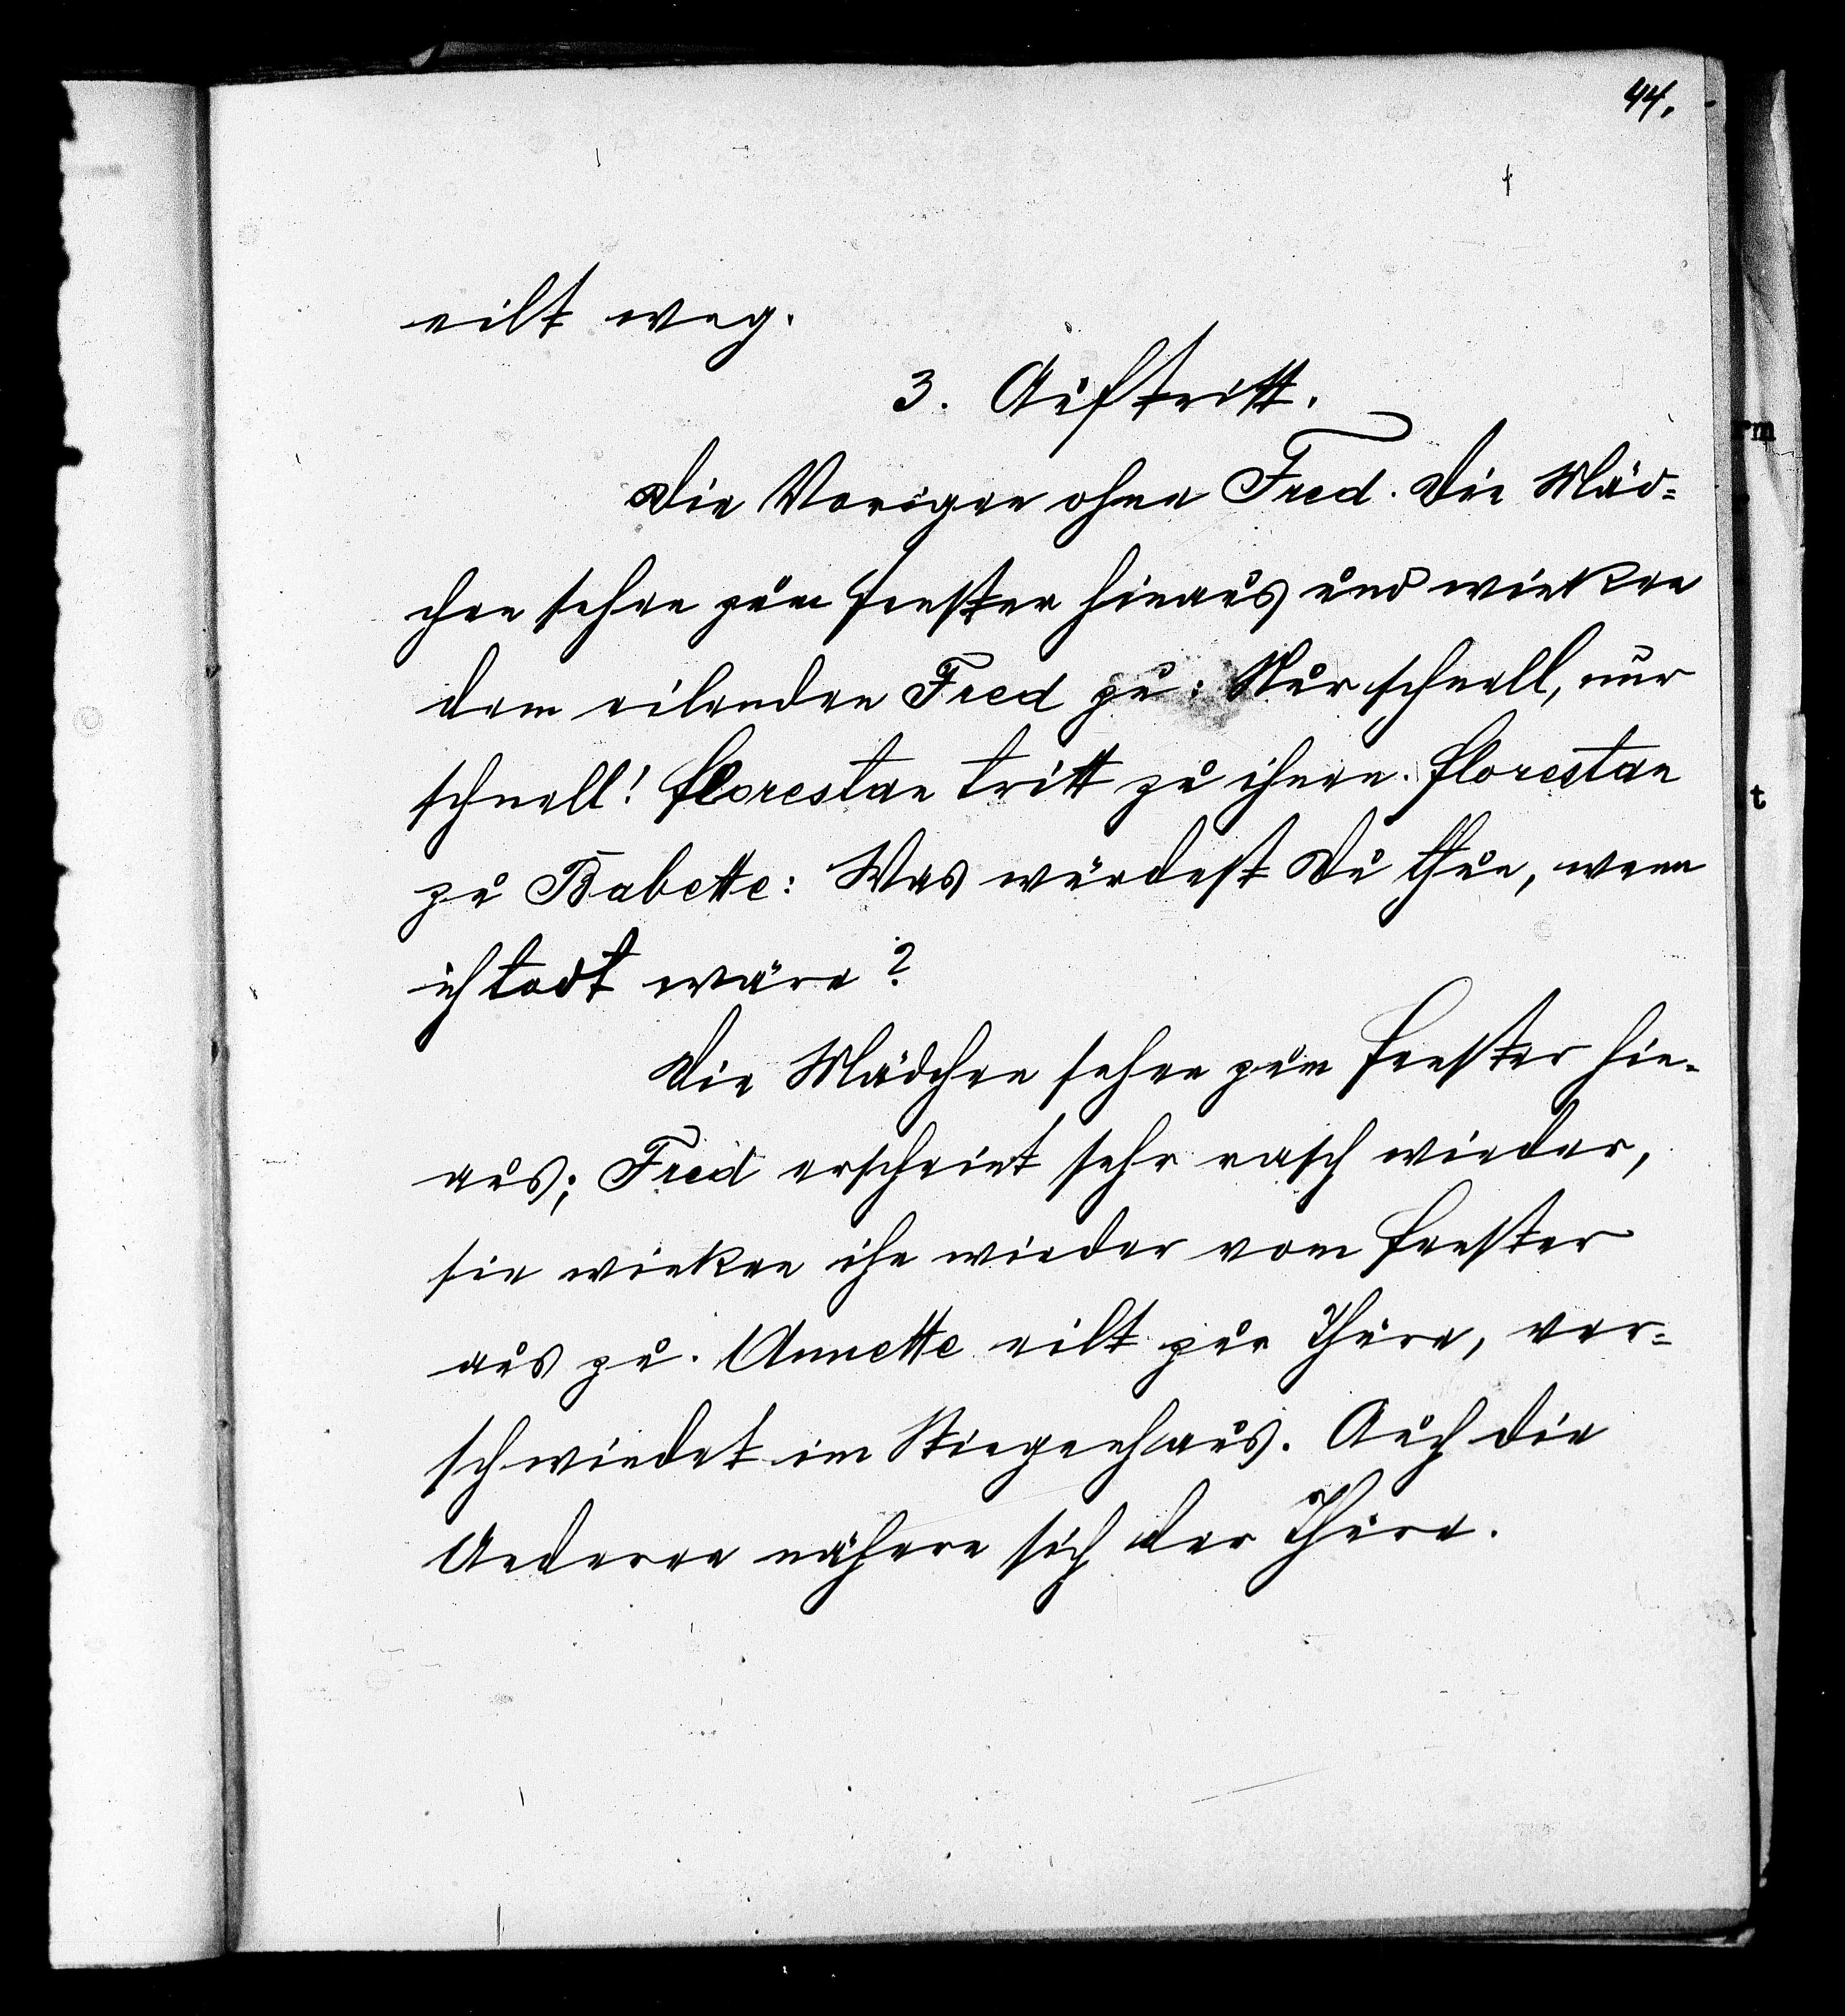 44.
eilt weg.
3. Auftritt.
Die Vorigen ohne Fred. Die Mäd-
chen sehen zum Fenster hinaus und winken
dem eilenden Fred zu: Nur schnell, nur
schnell! Florestan tritt zu ihnen. Florestan
zu Babette: Was würdest Du thun, wenn
ich todt wäre?
Die Mädchen sehen zum Fenster hin-
aus; Fred erscheint sehr rasch wieder,
sie winken ihn wieder vom Fenster
aus zu. Annette eilt zur Thüre, ver-
schwindet im Stiegenhaus. Auch die
Anderen nähern sich der Thüre.
rm
t